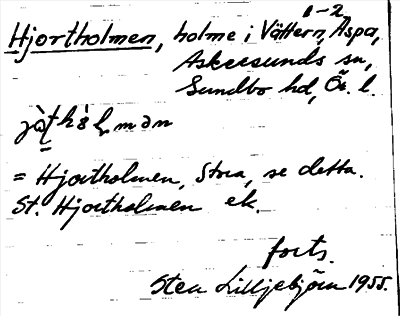 1-2
Hjortholmen, holme i Vättern, Aspa,
Askersunds sn,
Sundbo hd, Ör. l.
= Hjortholmen, Stora, se detta.
St. Hjortholmen ek.
forts.
Sten Lilljebjörn 1955.